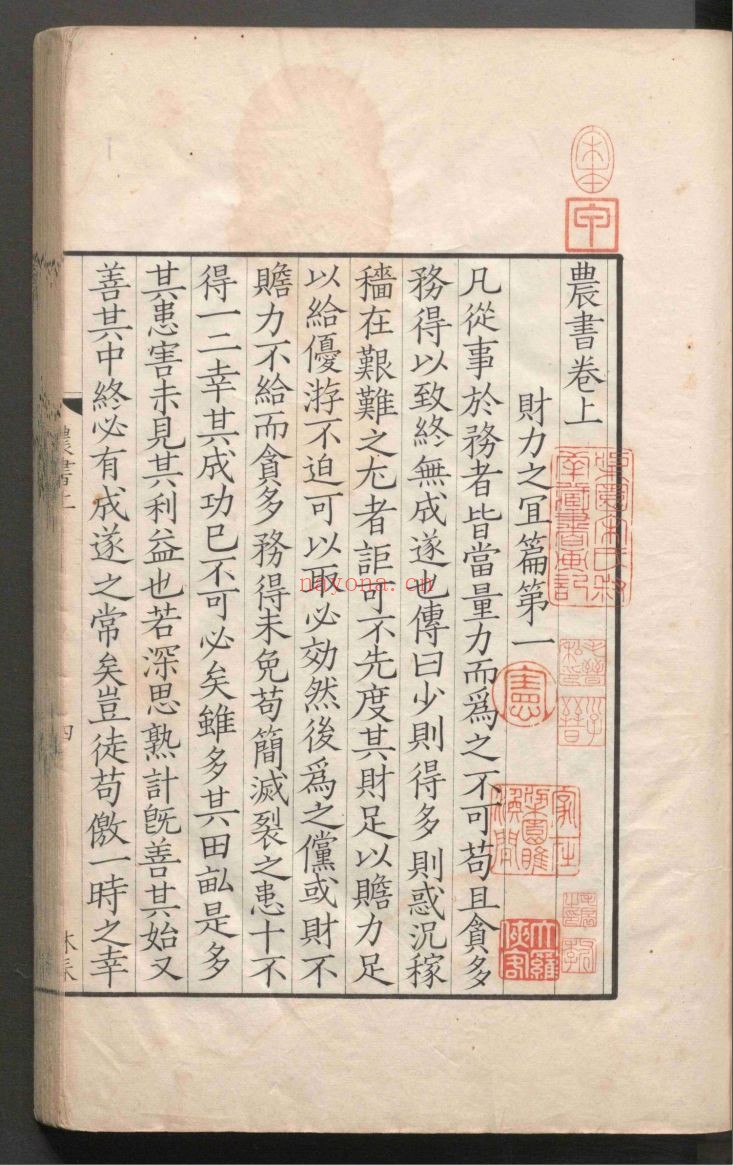 農書卷上
財力之冝篇第一
凡從事於務者皆當量力而爲之不可苟且貪多
務得以致終無成遂也傳曰少則得多則惑況稼
穡在艱難之尤者詎可不先度其財足以贍力足
以給優游不迫可以取必効然後爲之儻或財不
贍力不給而貪多務得未免苟簡滅裂之患十不
得一二幸其成功已不可必矣雖多其田畝是多
其患害未見其利益也若深思熟計旣善其始又
善其中終必有成遂之常矣豈徒苟儌一時之幸
農書上
四
宋本
甲
憲
大羅
俠客
nayona.cn